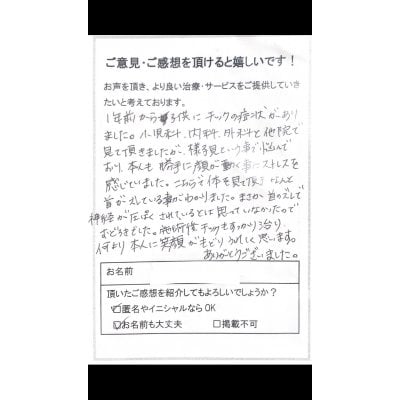 ご意見・ご感想を頂けると嬉しいです!
お声を頂き、より良い治療・サービスをご提供していき
たいと考えております。
1年前から子供にチックの症状があり
ました。小児科、内科、外科と他院で
見て頂きましたが、様子見という事で悩んで
おり、本人も勝手に顔が動く事にストレスを
感じていました。こちらで体を見て頂き なんと
首がズレている事がわかりました。まさか首のズレで
神経が圧ぱくされているとは思っていなかったので
おどろきでした。施術後チックもすっかり治り
何より本人に笑顔がもどりうれしく思います。
ありがとうございました。
お名前
頂いたご感想を紹介してもよろしいでしょうか?
☐匿名やイニシャルならOK
☑お名前も大丈夫 ☐掲載不可